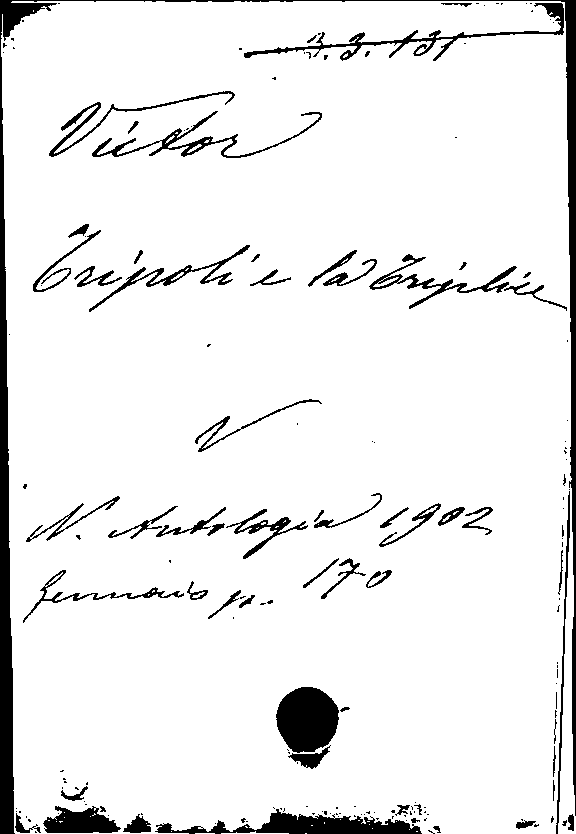 3.3.131
Victor
Tripoli e la Triplice
V
N. Antologia 1902
Gennaio p. 170